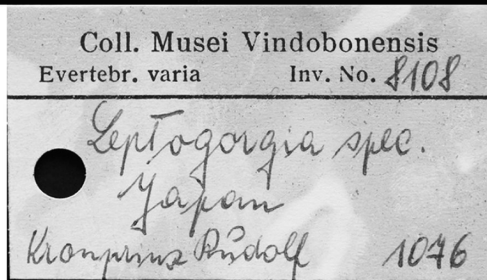 Coll. Musei Vindobonensis
Evertebr. varia Inv. No. 8108
Leptogorgia spec.
Japan
Kronprinz Rudolf 1076